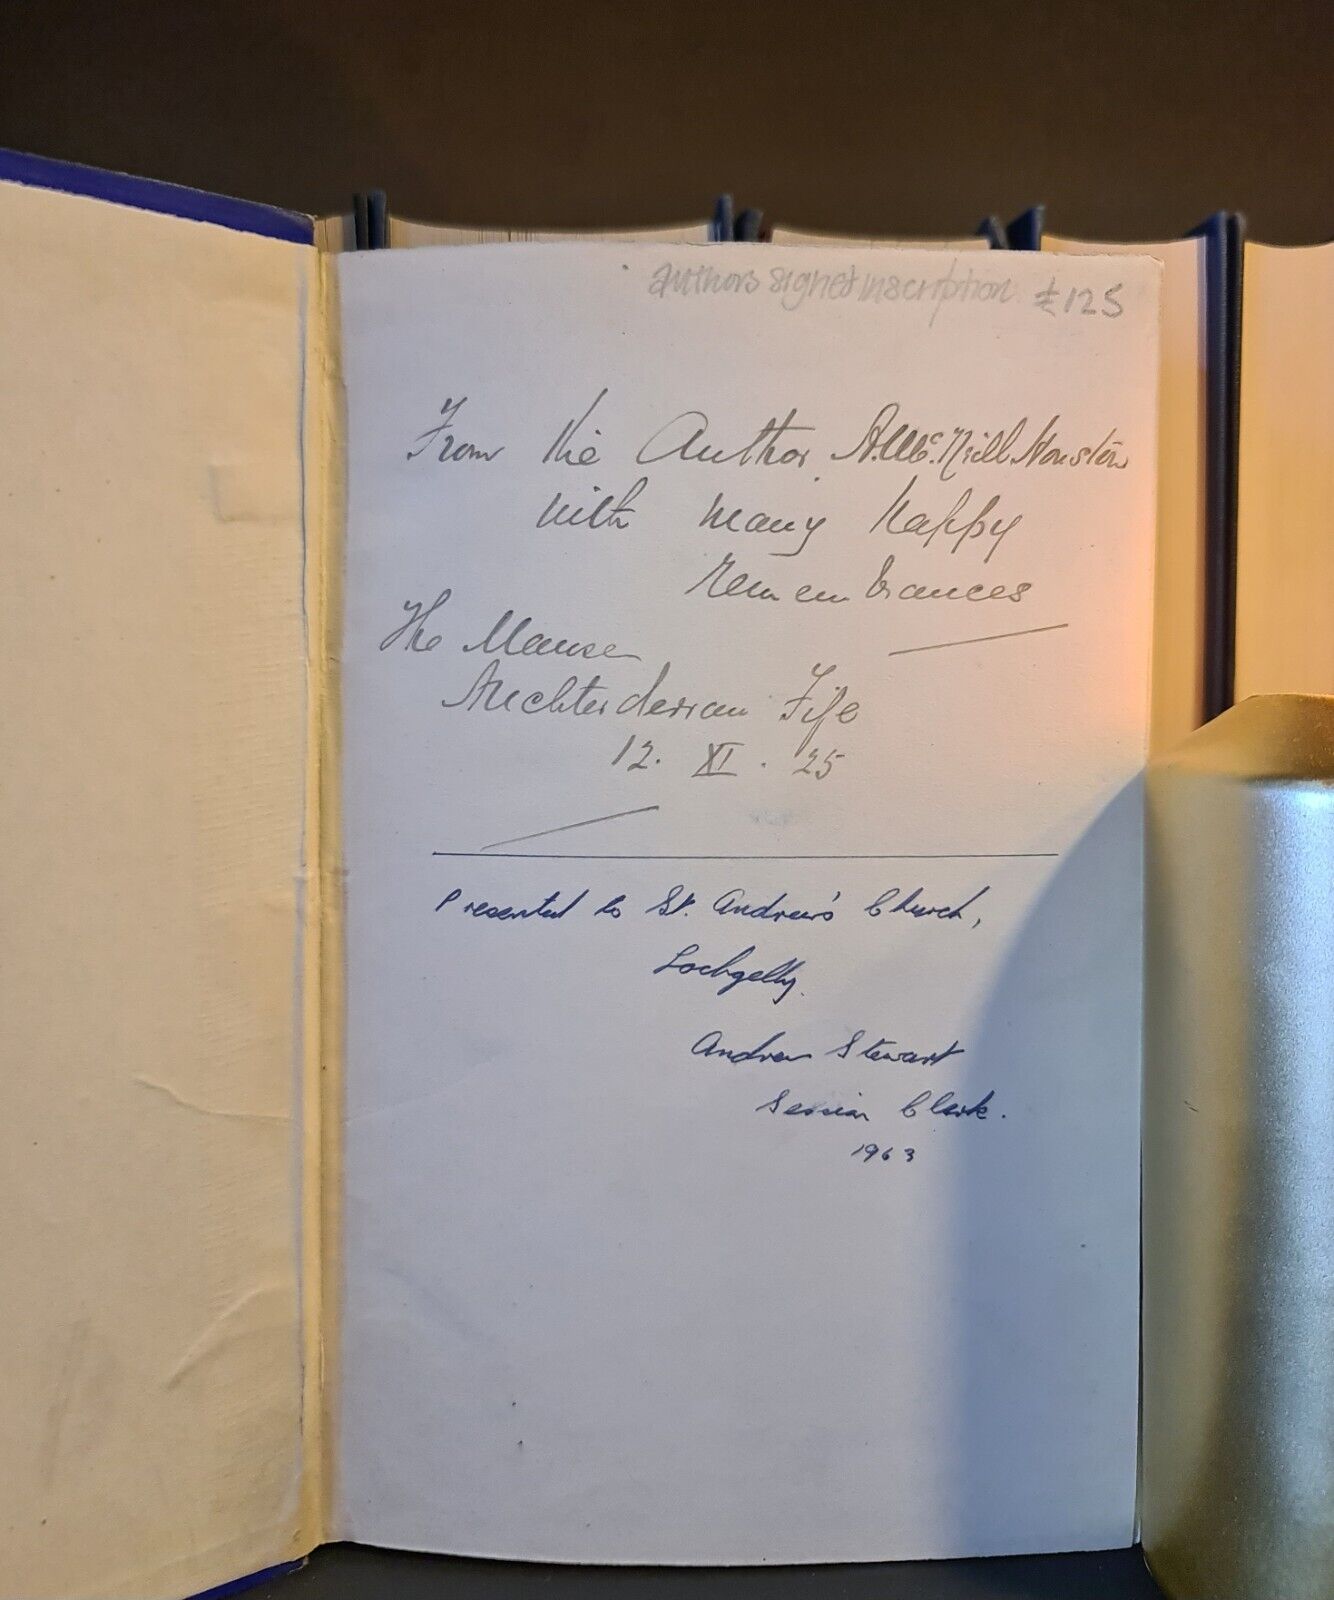 authors signed inscription £125
From the Author A. McNeill Houston
with many happy
remembrances
The Manse
Auchterderran Fife
12. XI. 25
Presented to St. Andrew's Church,
Lochgelly.
Andrew Stewart
Session Clerk.
1963